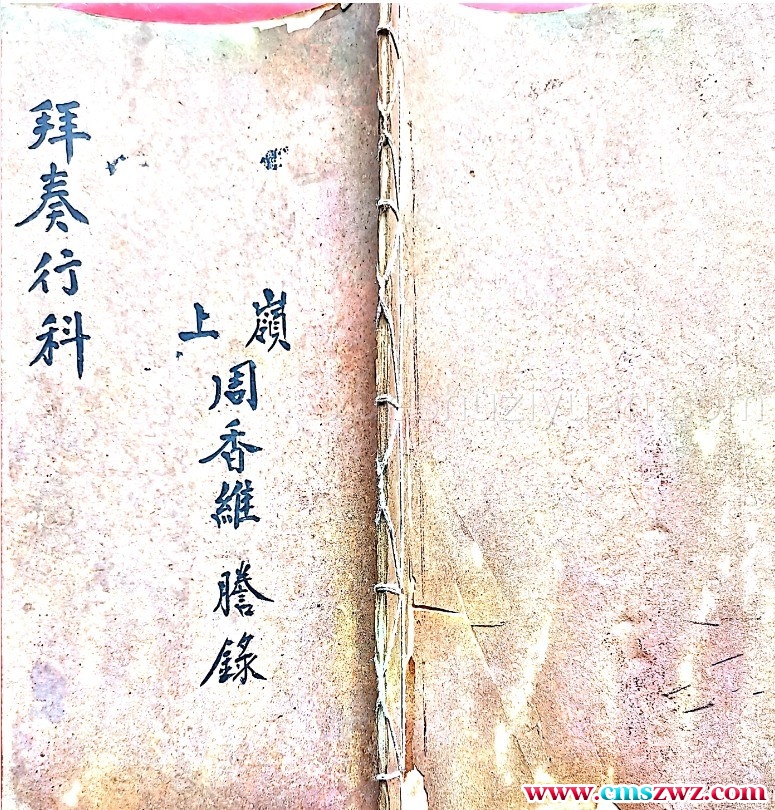 嶺上
周香維 謄錄
拜奏行科
www.cmszwz.com